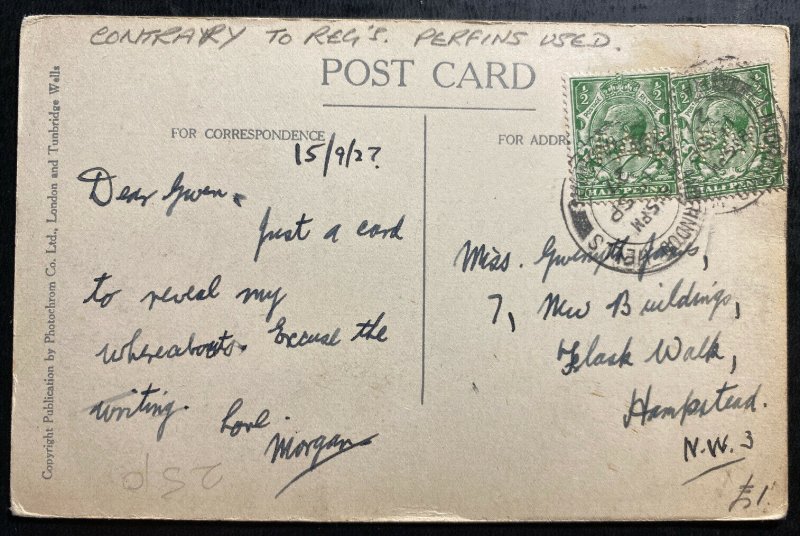 CONTRARY TO REG'S. PERFINS USED.
POST CARD
FOR CORRESPONDENCE
FOR ADDR
Copyright Publication by Photochrom Co. Ltd., London and Tunbridge Wells
15/9/27.
Dear Gwen,
Just a card
to reveal my
whereabouts. Excuse the
writing.
Love
Morgan
Miss. Gwenyth
7, New Buildings,
Flask Walk,
Hampstead.
N.W. 3
½ ½
HALFPENNY
½ ½
HALF PE
LLANDRINDOD WELLS
25p
£1